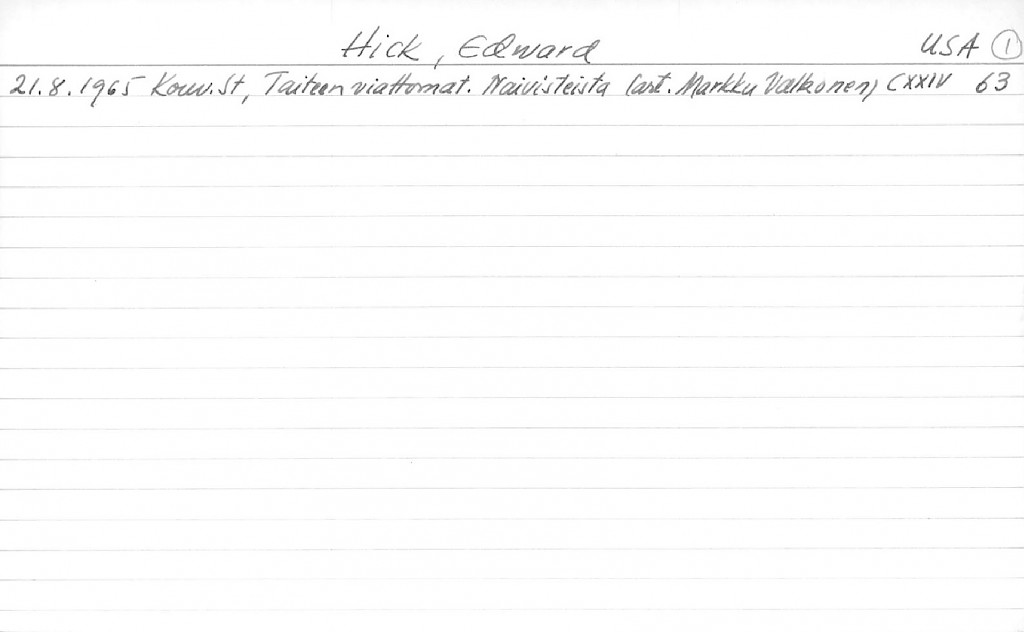 Hick, Edward USA 1
21.8.1965 Kouv.St, Taiteen viattomat. Naivisteista (art. Markku Valkonen) CXXIV 63